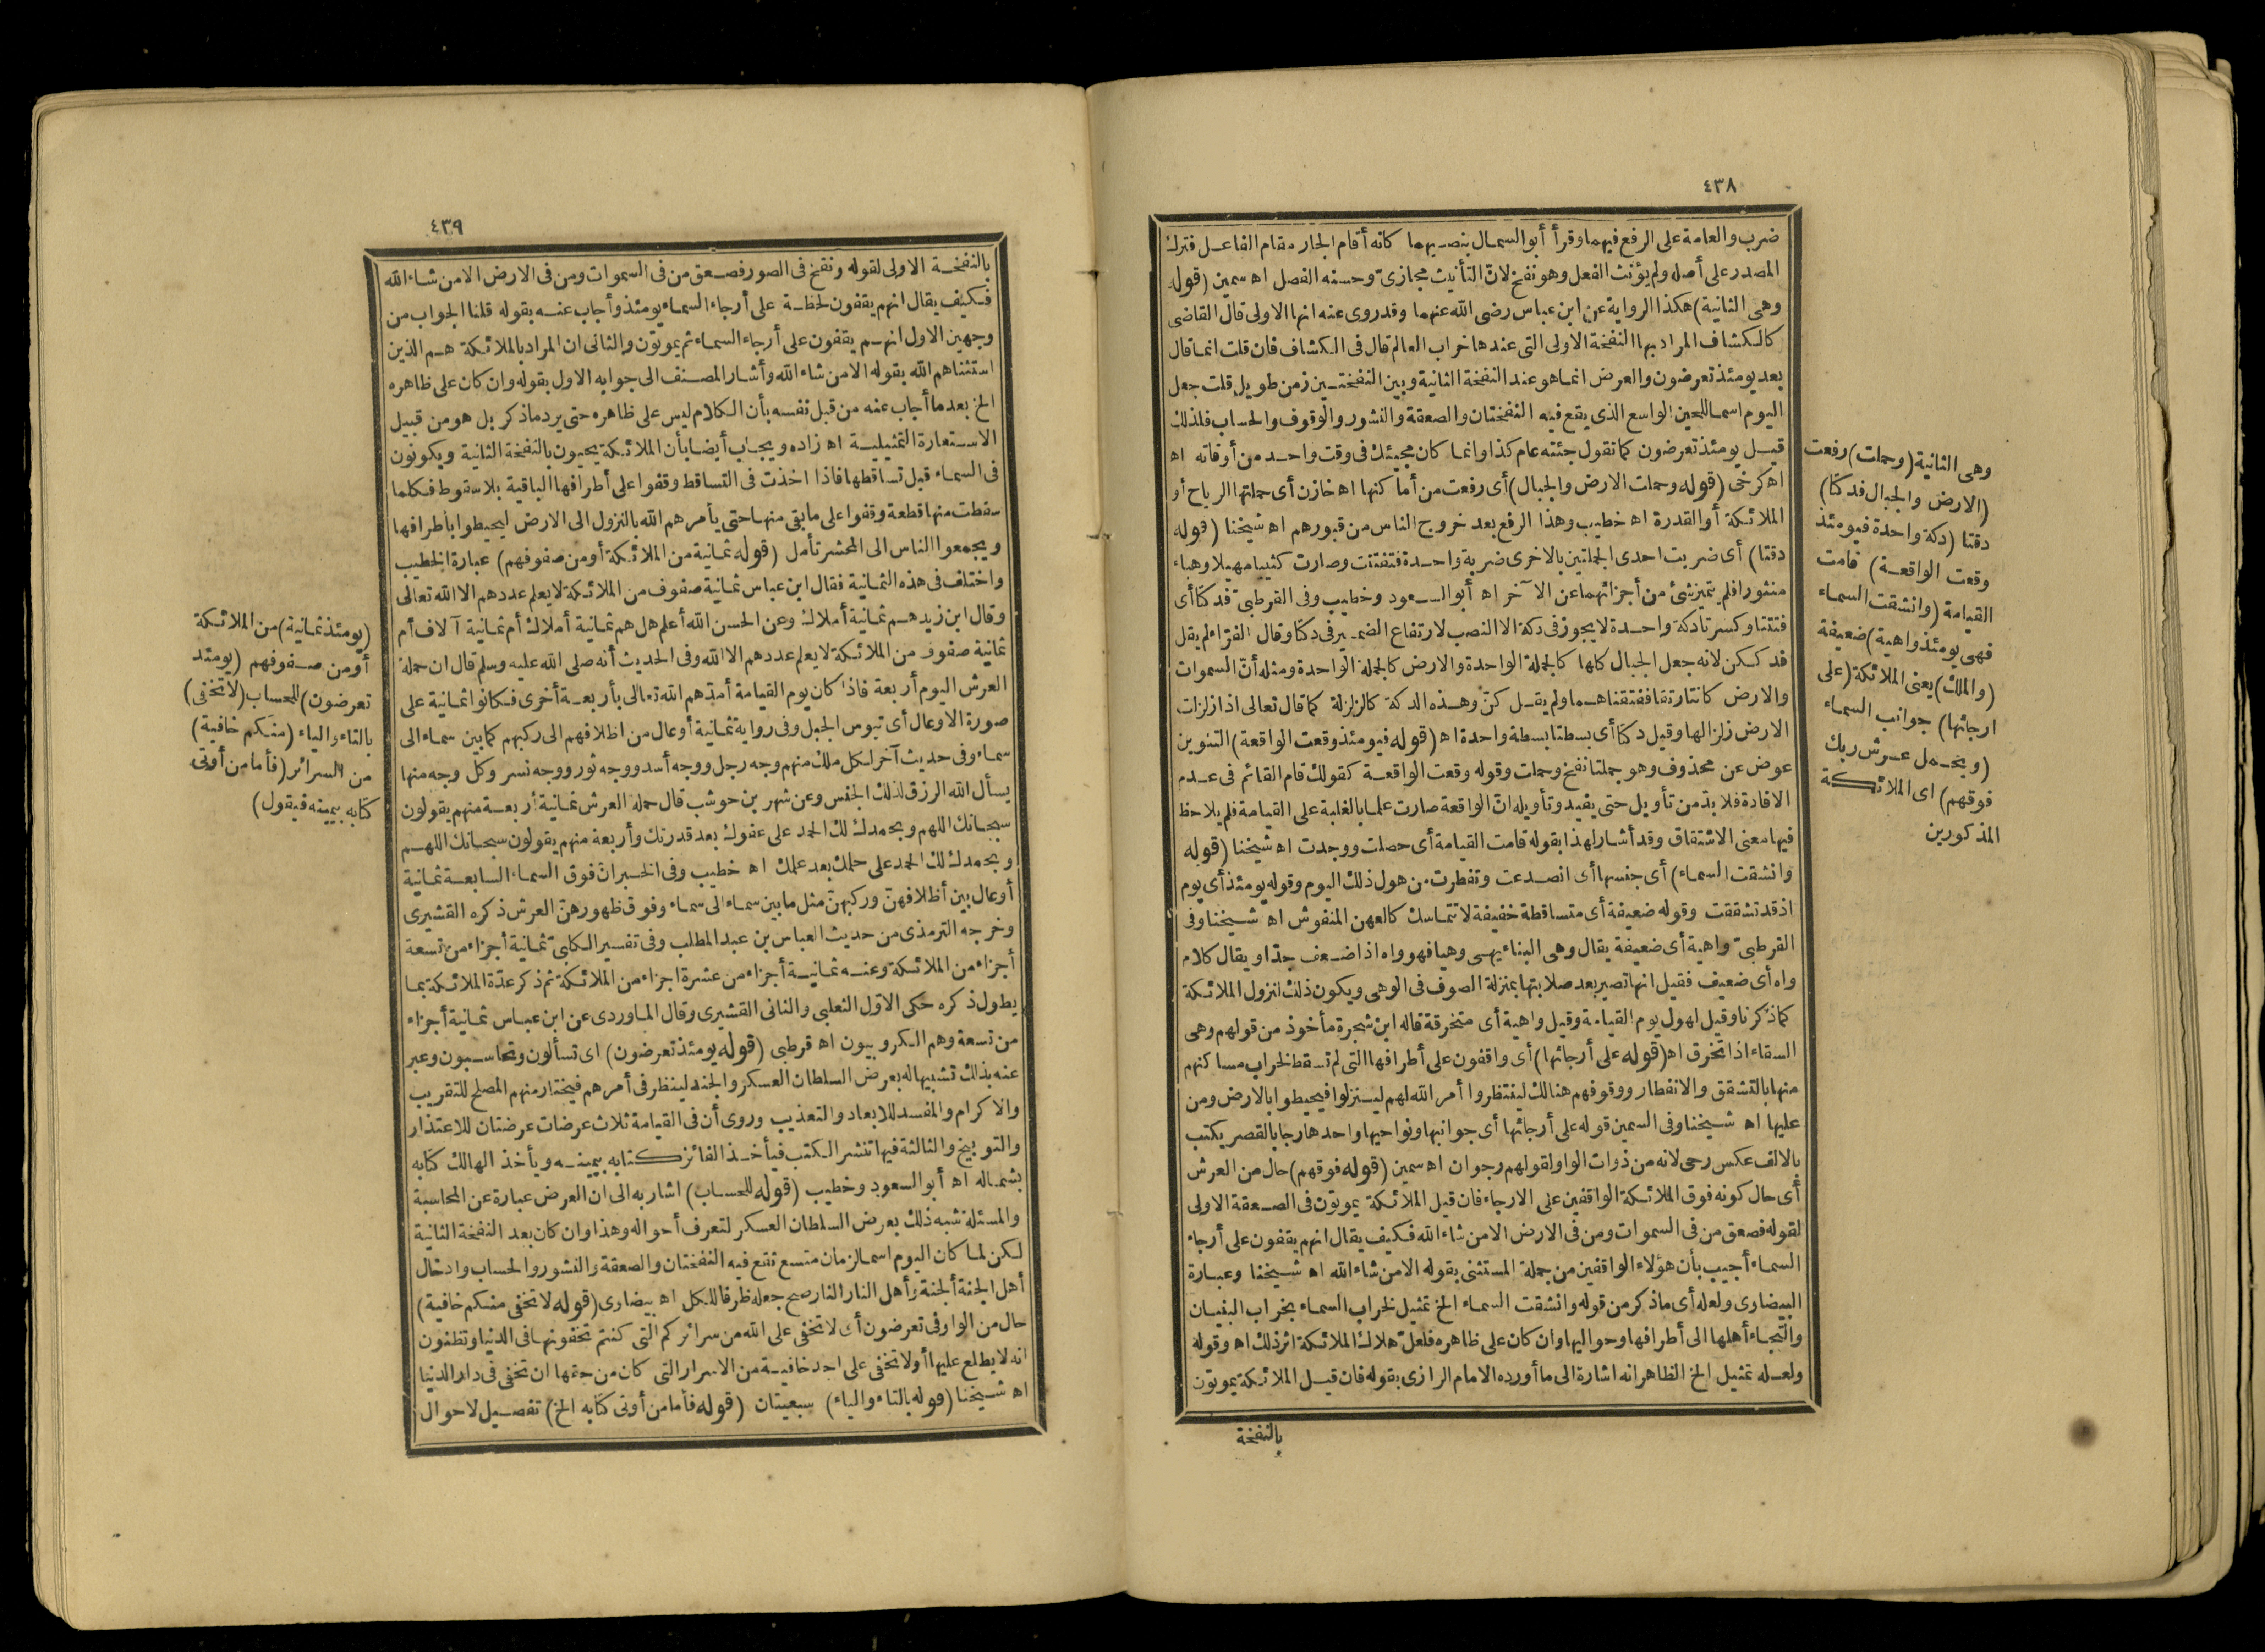 ٤٣٨
ضرب والعامة على الرفع فيهما وقرأ أبو السمال بنصبهما كانه أقام الجار مقام الفاعل فترك
المصدر على أصله ولم يؤنث الفعل وهو نفخ لانّ التأنيث مجازىّ وحسنه الفصل اه سمين (قوله
وهى الثانية) هكذا الرواية عن ابن عباس رضى الله عنهما وقد روى عنه انها الاولى قال القاضى
كالكشاف المراد بها النفخة الاولى التى عندها خراب العالم قال فى الكشاف فان قلت انما قال
بعد يومئذ تعرضون والعرض انما هو عند النفخة الثانية وبين النفختين زمن طويل قلت جعل
اليوم اسما للحين الواسع الذى يقع فيه النفختان والصعقة والنشور والوقوف والحساب فلذلك
قيل يومئذ تعرضون كما تقول جئته عام كذا وانما كان مجيئك فى وقت واحد من أوقاته اه
اه كرخى (قوله وحملت الارض والجبال) أى رفعت من أماكنها اه خازن أى حملتها الرياح أو
الملائكة أو القدرة اه خطيب وهذا الرفع بعد خروج الناس من قبورهم اه شيخنا (قوله
دقتا) أى ضربت احدى الجملتين بالاخرى ضربة واحدة فتفتتت وصارت كثيبا مهيلا وهباء
منثورا فلم يتميز شئ من أجزائهما عن الآخر اه أبو السعود وخطيب وفى القرطبىّ فدكتا أى
فتتتا وكسرتا دكة واحدة لا يجوز فى دكة الا النصب لارتفاع الضمير فى دكتا وقال الفرّاء لم يقل
فدككن لانه جعل الجبال كلها كالجملة الواحدة والارض كالجملة الواحدة ومثله أنّ السموات
والارض كانتا رتقا ففتقناهما ولم يقل كنّ وهذه الدكة كالزلزلة كما قال تعالى اذا زلزلت
الارض زلزالها وقيل دكتا أى بسطتا بسطة واحدة اه (قوله فيومئذ وقعت الواقعة) التنوين
عوض عن محذوف وهو جملتا نفخ وحملت وقوله وقعت الواقعة كقولك قام القائم فى عدم
الافادة فلا بدّ من تأويل حتى يفيد وتأويله انّ الواقعة صارت علما بالغلبة على القيامة فلم يلاحظ
فيها معنى الاشتقاق وقد أشار لهذا بقوله قامت القيامة أى حصلت ووجدت اه شيخنا (قوله
وانشقت السماء) أى جنسها أى انصدعت وتفطرت من هول ذلك اليوم وقوله يومئذ أى يوم
اذ قد تشققت وقوله ضعيفة أى متساقطة خفيفة لا تتماسك كالعهن المنفوش اه شيخنا وفى
القرطبىّ واهية أى ضعيفة يقال وهى البناء يهى وهيا فهو واه اذا ضعف جدّا ويقال كلام
واه أى ضعيف فقيل انها تصير بعد صلابتها بمنزلة الصوف فى الوهى ويكون ذلك لنزول الملائكة
كما ذكرنا وقيل لهول يوم القيامة وقيل واهية أى متخرقة قاله ابن شجرة مأخوذ من قولهم وهى
السقاء اذا تخرق اه (قوله على أرجائها) أى واقفون على أطرافها التى لم تسقط لخراب مساكنهم
منها بالتشقق والانفطار ووقوفهم هنالك لينتظروا أمر الله لهم لينزلوا فيحيطوا بالارض ومن
عليها اه شيخنا وفى السمين قوله على أرجائها أى جوانبها ونواحيها واحدها رجا بالقصر يكتب
بالالف عكس رحى لانه من ذوات الواو لقولهم رجوان اه سمين (قوله فوقهم) حال من العرش
أى حال كونه فوق الملائكة الواقفين على الارجاء فان قيل الملائكة يموتون فى الصعقة الاولى
لقوله فصعق من فى السموات ومن فى الارض الا من شاء الله فكيف يقال انهم يقفون على أرجاء
السماء أجيب بأن هؤلاء الواقفين من جملة المستثنى بقوله الا من شاء الله اه شيخنا وعبارة
البيضاوى ولعله أى ما ذكر من قوله وانشقت السماء الخ تمثيل لخراب السماء بخراب البنيان
والتجاء أهلها الى أطرافها وحواليها وان كان على ظاهره فلعلّ هلاك الملائكة اثر ذلك اه وقوله
ولعله تمثيل الخ الظاهر انه اشارة الى ما أورده الامام الرازى بقوله فان قيل الملائكة يموتون
بالنفخة
وهى الثانية (وحملت) رفعت
(الارض والجبال فدكتا)
دقتا (دكة واحدة فيومئذ
وقعت الواقعة) قامت
القيامة (وانشقت السماء
فهى يومئذ واهية) ضعيفة
(والملك) يعنى الملائكة (على
ارجائها) جوانب السماء
(ويحمل عرش ربك
فوقهم) اى الملائكة
المذكورين
٤٣٩
بالنفخة الاولى لقوله ونفخ فى الصور فصعق من فى السموات ومن فى الارض الا من شاء الله
فكيف يقال انهم يقفون لحظة على أرجاء السماء يومئذ وأجاب عنه بقوله قلنا الجواب من
وجهين الاول انهم يقفون على أرجاء السماء ثم يموتون والثانى ان المراد بالملائكة هم الذين
استثناهم الله بقوله الا من شاء الله وأشار المصنف الى جوابه الاول بقوله وان كان على ظاهره
الخ بعد ما أجاب عنه من قبل نفسه بأن الكلام ليس على ظاهره حتى يرد ما ذكر بل هو من قبيل
الاستعارة التمثيلية اه زاده ويجاب أيضا بأن الملائكة يحيون بالنفخة الثانية ويكونون
فى السماء قبل تساقطها فاذا اخذت فى التساقط وقفوا على أطرافها الباقية بلا سقوط فكلما
سقطت منها قطعة وقفوا على ما بقى منها حتى يأمرهم الله بالنزول الى الارض ليحيطوا بأطرافها
ويجمعوا الناس الى المحشر تأمل (قوله ثمانية من الملائكة أو من صفوفهم) عبارة الخطيب
واختلف فى هذه الثمانية فقال ابن عباس ثمانية صفوف من الملائكة لا يعلم عددهم الا الله تعالى
وقال ابن زيد هم ثمانية أملاك وعن الحسن الله أعلم هل هم ثمانية أملاك أم ثمانية آلاف أم
ثمانية صفوف من الملائكة لا يعلم عددهم الا الله وفى الحديث أنه صلى الله عليه وسلم قال ان حملة
العرش اليوم أربعة فاذا كان يوم القيامة أمدّهم الله تعالى بأربعة أخرى فكانوا ثمانية على
صورة الاوعال أى تيوس الجبل وفى رواية ثمانية أوعال من اظلافهم الى ركبهم كما بين سماء الى
سماء وفى حديث آخر لكل ملك منهم وجه رجل ووجه أسد ووجه ثور ووجه نسر وكل وجه منها
يسأل الله الرزق لذلك الجنس وعن شهر بن حوشب قال حملة العرش ثمانية أربعة منهم يقولون
سبحانك اللهم وبحمدك لك الحمد على عفوك بعد قدرتك وأربعة منهم يقولون سبحانك اللهم
وبحمدك لك الحمد على حلمك بعد علمك اه خطيب وفى الخبر ان فوق السماء السابعة ثمانية
أوعال بين أظلافهنّ وركبهنّ مثل ما بين سماء الى سماء وفوق ظهورهنّ العرش ذكره القشيرى
وخرجه الترمذى من حديث العباس بن عبد المطلب وفى تفسير الكلبىّ ثمانية أجزاء من تسعة
أجزاء من الملائكة وعنه ثمانية أجزاء من عشرة اجزاء من الملائكة ثم ذكر عدّة الملائكة بما
يطول ذكره حكى الاوّل الثعلبى والثانى القشيرى وقال الماوردى عن ابن عباس ثمانية أجزاء
من تسعة وهم الكروبيون اه قرطبى (قوله يومئذ تعرضون) اى تسألون وتحاسبون وعبر
عنه بذلك تشبيها له بعرض السلطان العسكر والجند لينظر فى أمرهم فيختار منهم المصلح للتقريب
والاكرام والمفسد للابعاد والتعذيب وروى أن فى القيامة ثلاث عرضات عرضتان للاعتذار
والتوبيخ والثالثة فيها تنشر الكتب فيأخذ الفائز كتابه بيمينه ويأخذ الهالك كتابه
بشماله اه أبو السعود وخطيب (قوله للحساب) اشار به الى ان العرض عبارة عن المحاسبة
والمسئلة شبه ذلك بعرض السلطان العسكر لتعرف أحواله وهذا وان كان بعد النفخة الثانية
لكن لما كان اليوم اسما لزمان متسع تقع فيه النفختان والصعقة والنشور والحساب وادخال
أهل الجنة الجنة وأهل النار النار صح جعله ظرفا للكل اه بيضاوى (قوله لا تخفى منكم خافية)
حال من الواو فى تعرضون أى لا تخفى على الله من سرائركم التى كنتم تخفونها فى الدنيا وتظنون
انه لا يطلع عليها أو لا تخفى على احد خافية من الاسرار التى كان من حقها ان تخفى فى دار الدنيا
اه شيخنا (قوله بالتاء والياء) سبعيتان (قوله فأما من أوتى كتابه الخ) تفصيل لاحوال
(يومئذ ثمانية) من الملائكة
أو من صفوفهم (يومئذ
تعرضون) للحساب (لا تخفى)
بالتاء والياء (منكم خافية)
من السرائر (فأما من أوتى
كتابه بيمينه فيقول)